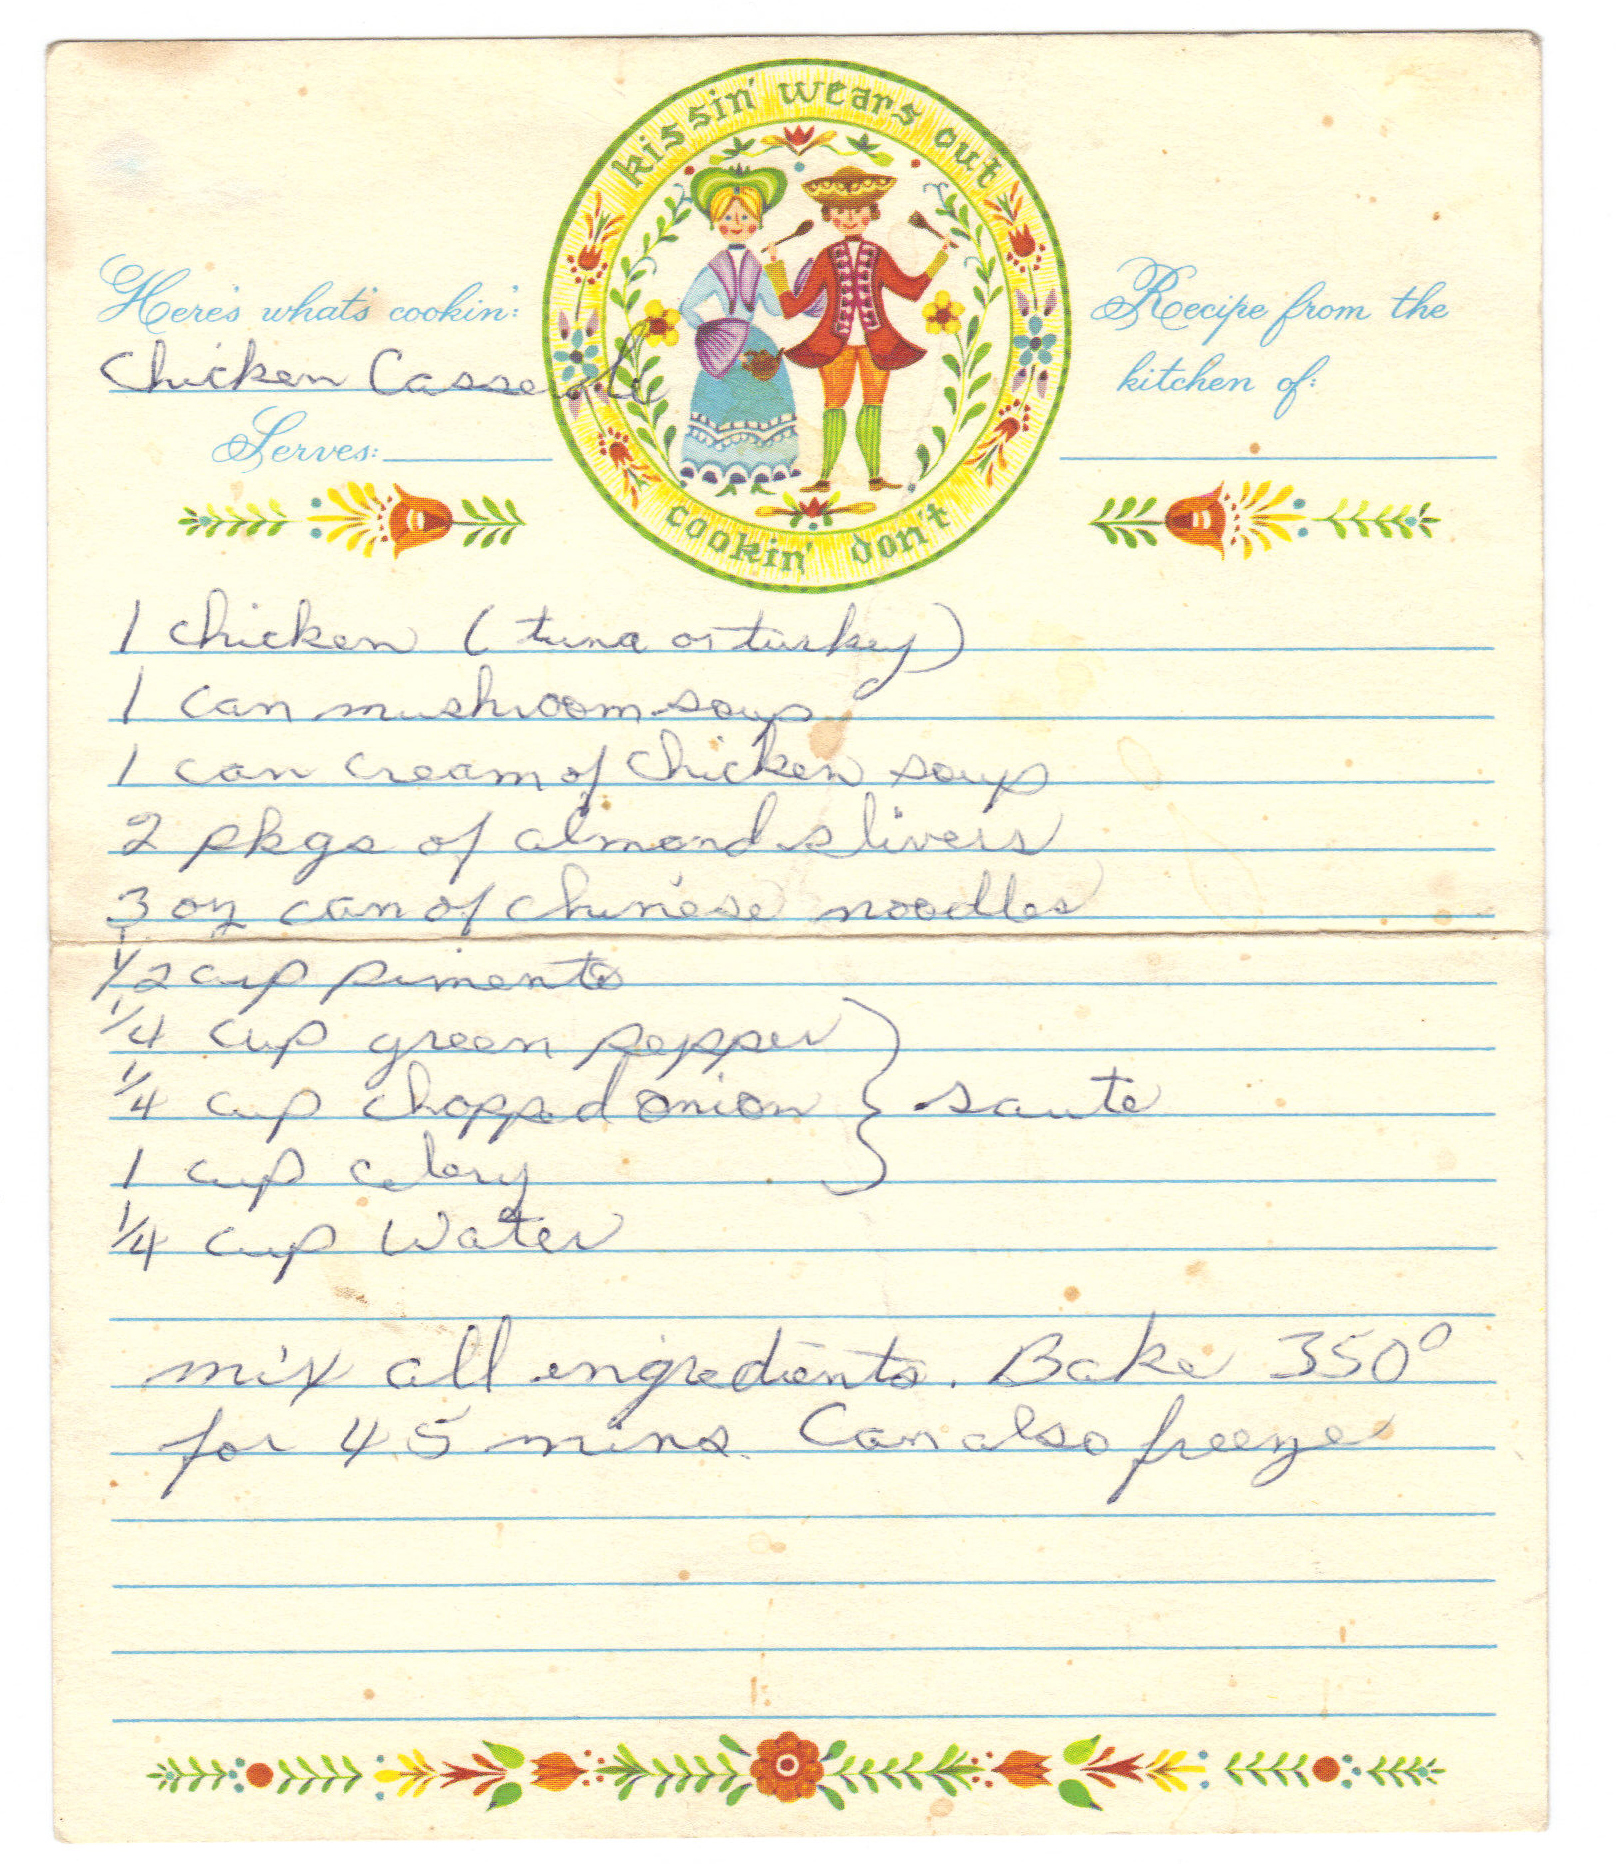 kissin' wears out
cookin' don't
Here's what's cookin':
Chicken Casserole
Serves:
Recipe from the
kitchen of:
1 chicken (tuna or turkey)
1 can mushroom soup
1 can cream of chicken soup
2 pkgs of almond slivers
3 oz can of chinese noodles
1/2 cup pimento
1/4 cup green pepper
1/4 cup chopped onion } saute
1 cup celery
1/4 cup water
mix all ingredients. Bake 350°
for 45 mins. Can also freeze